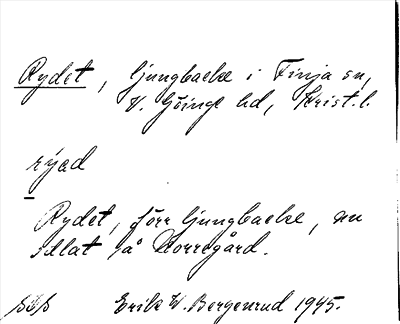 Rydet, ljungbacke i Finja sn,
V. Göinge hd, Krist. l.
rýed
Rydet, förr ljungbacke, nu
på Norregård.
Erik W. Bergenrud 1945.